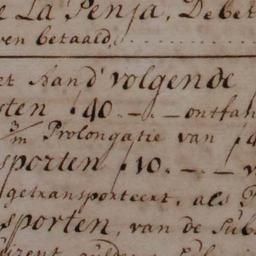 e La Penja, Debet
en betaald
et Rand volgende
sten f 40.-.- ontfan
3/m Prolongatie van f 4
sporten f 10.-.- v
getransporteert, als
sporten, van de Sub